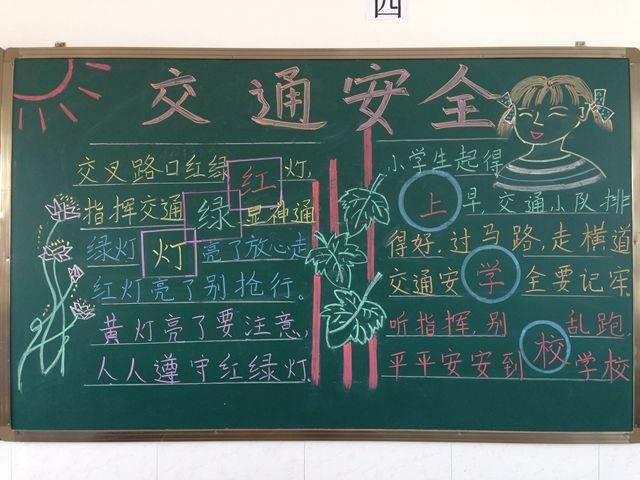 四
交通安全
交叉路口红绿灯,
指挥交通显神通
绿灯亮了放心走
红灯亮了别抢行。
黄灯亮了要注意,
人人遵守红绿灯.
红
绿
灯
小学生起得
早,交通小队排
得好.过马路,走横道
交通安全要记牢.
听指挥,别乱跑.
平平安安到学校
上
学
校